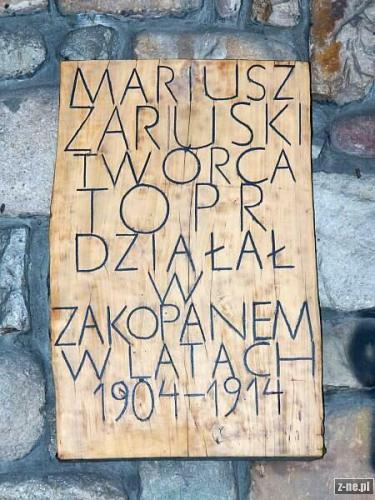 MARIUSZ
ZARUSKI
TWÓRCA
TOPR
DZIAŁAŁ
W
ZAKOPANEM
W LATACH
1904-1914
z-ne.pl